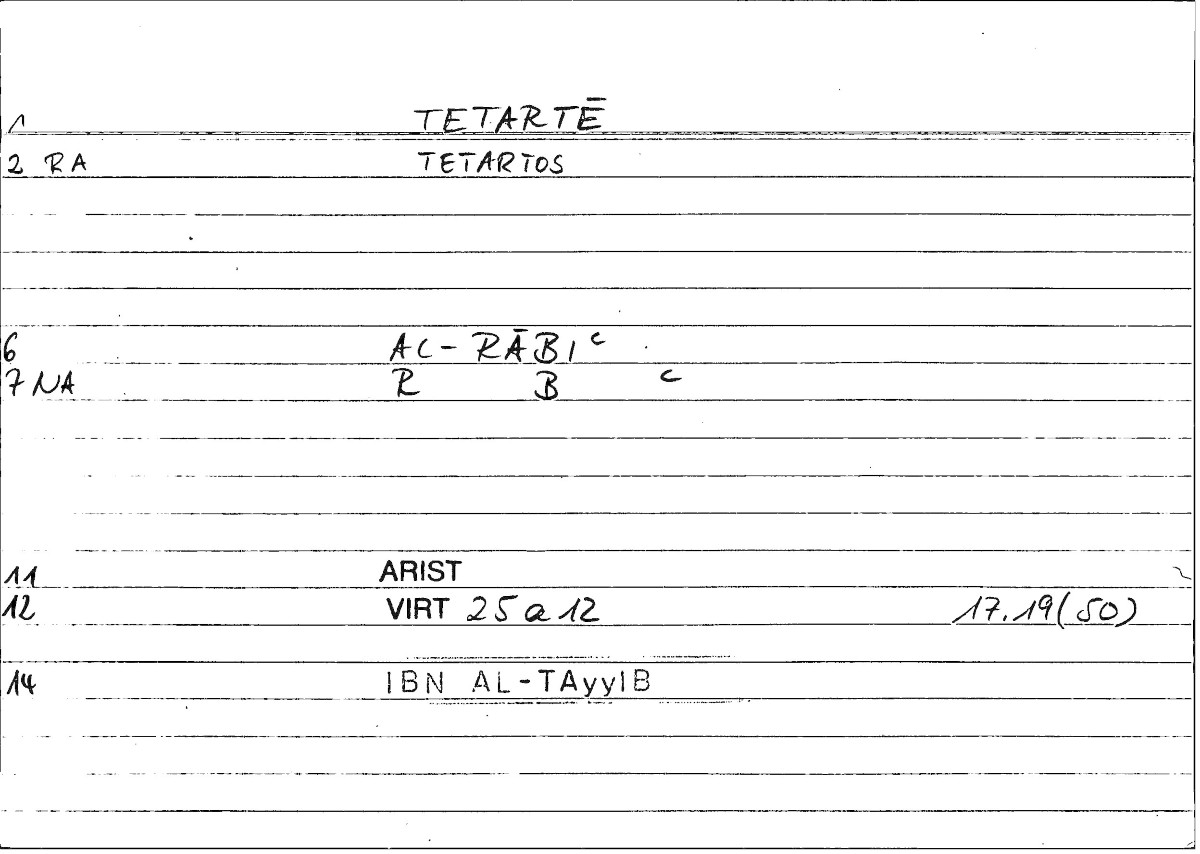 1 TETARTĒ
2 RA TETARTOS
6 AL-RĀBIᶜ
7 NA R B ᶜ
11 ARIST
12 VIRT 25 a 12 17.19(50)
14 IBN AL-TAyyIB